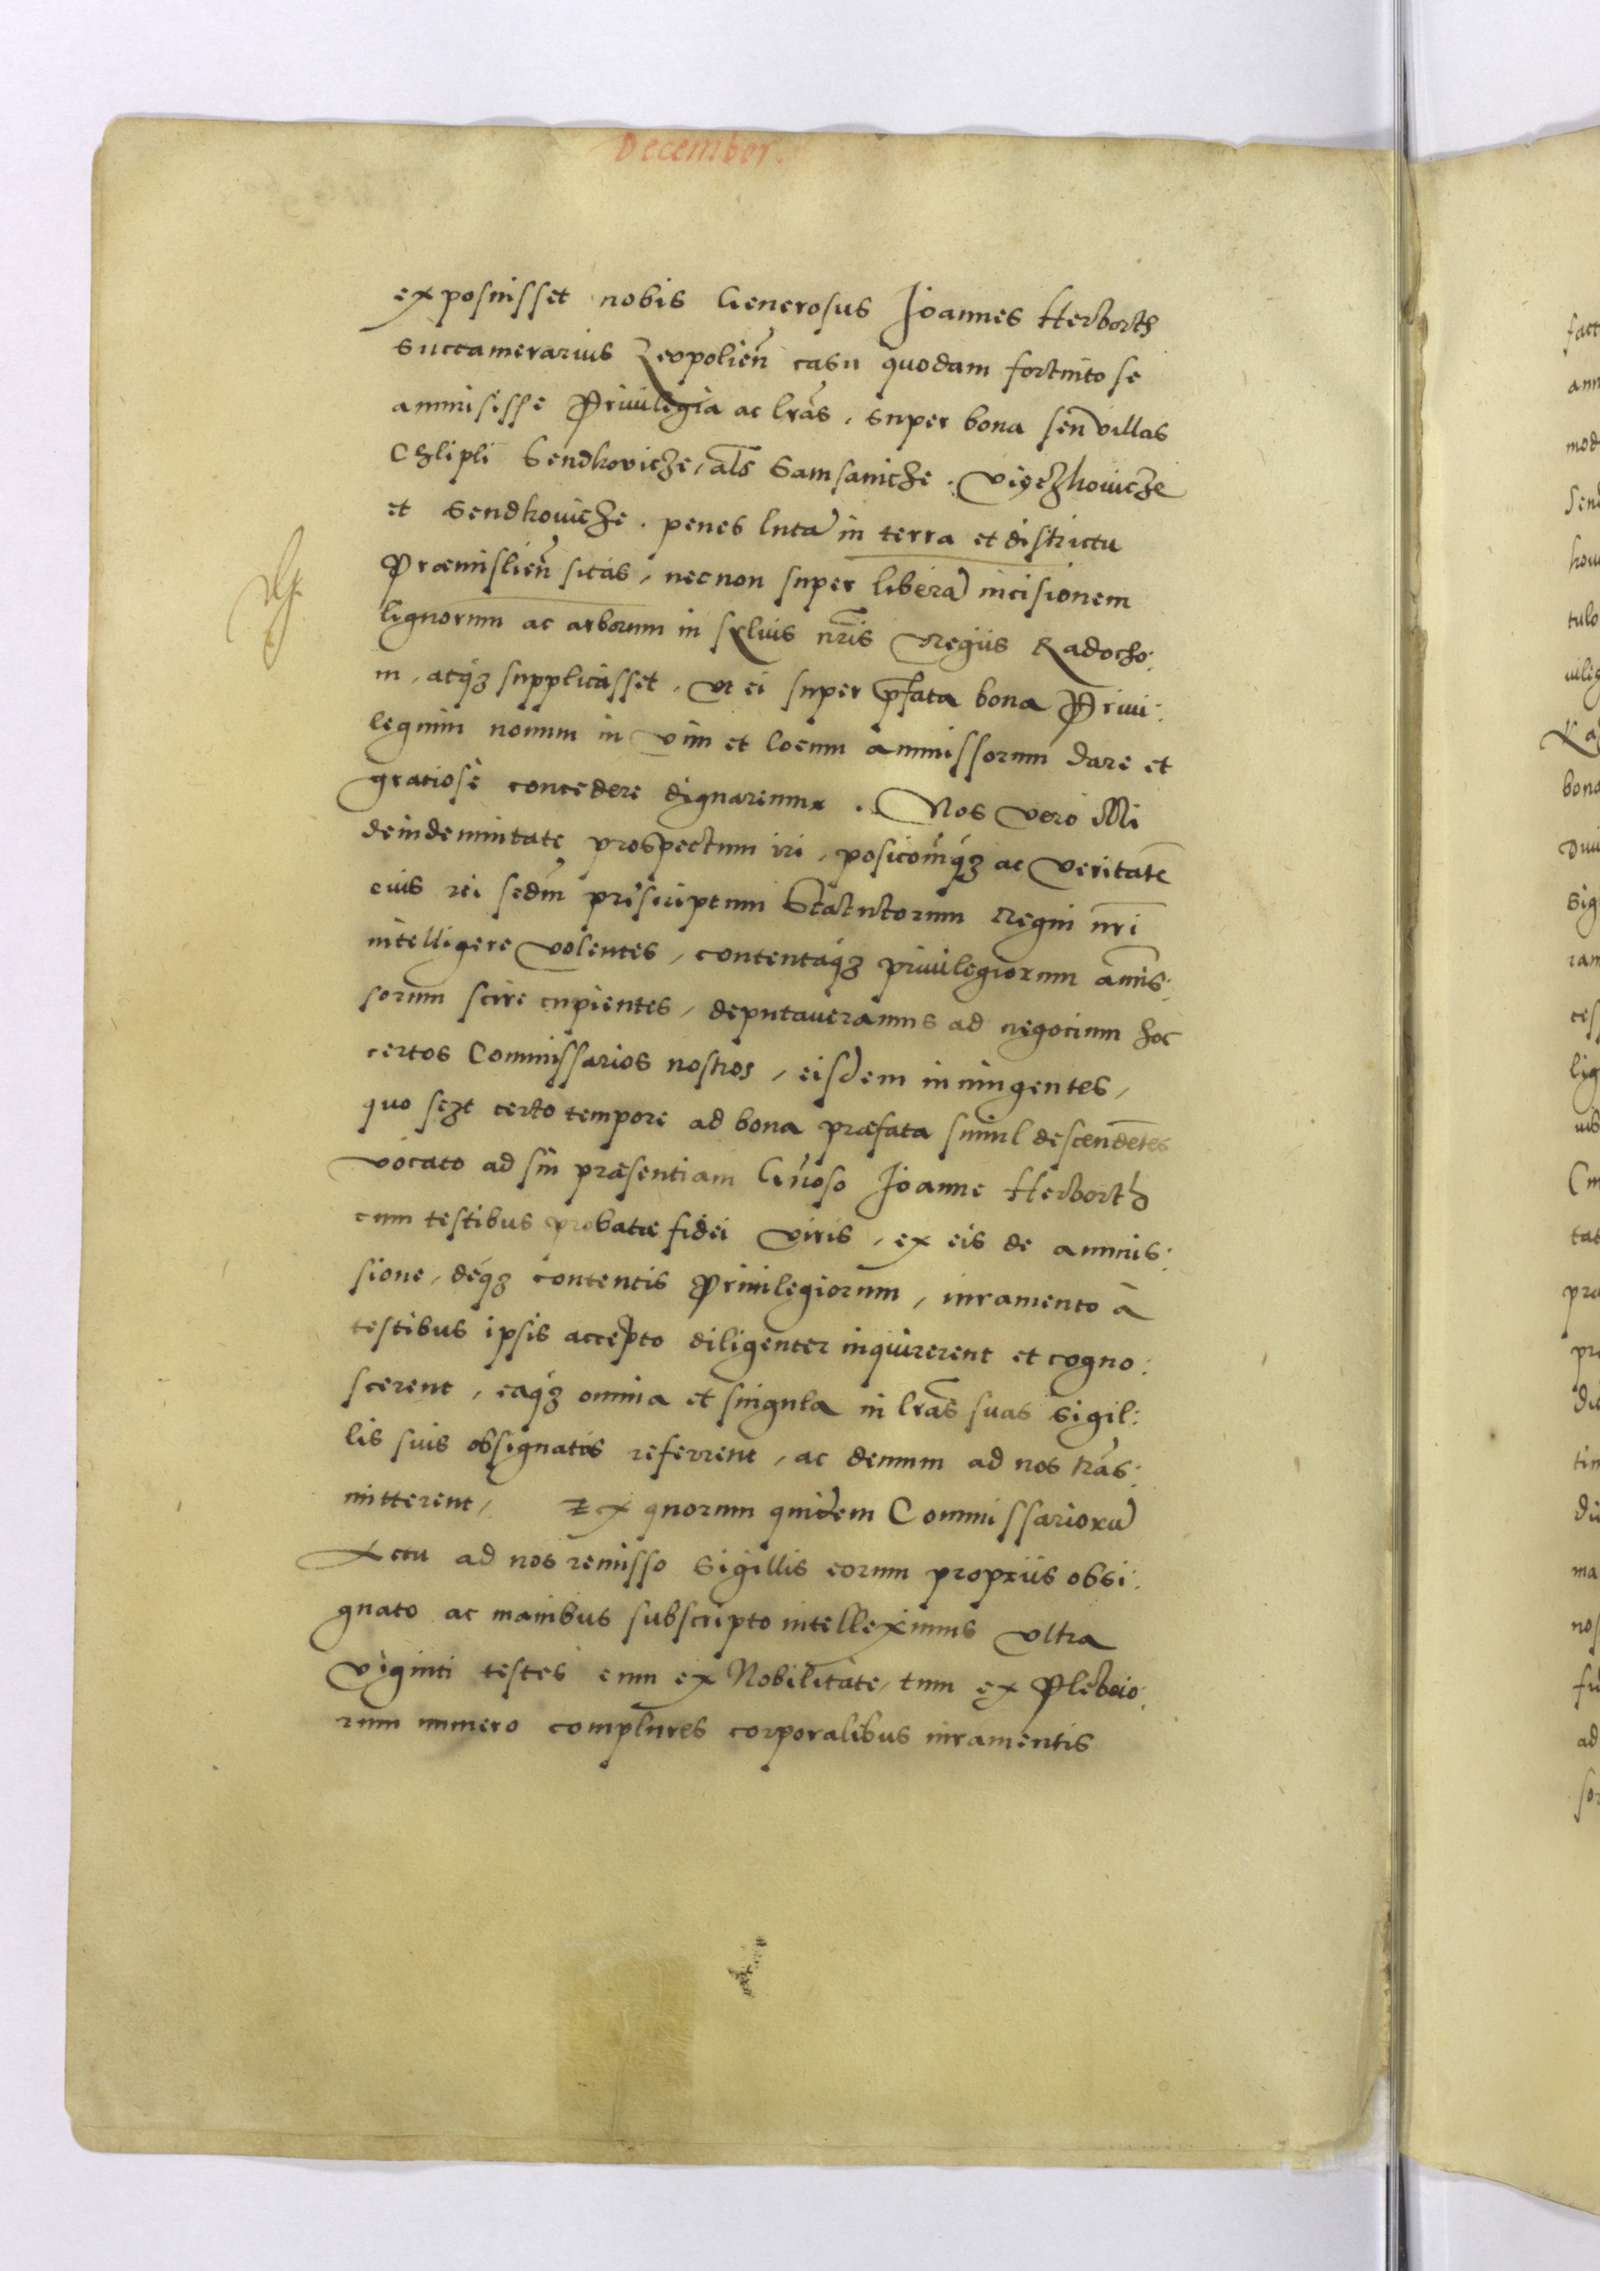 December.
exposuisset nobis Generosus Joannes Herborth
succamerarius Leopolien̄ casu quodam fortuito se
ammisisse Priuilegia ac lr̄as, super bona seu villas
Chlipli Sendkovicze, al̄s Samsanicze. Viyczkouicze
et Sendkouicze. penes luta in terra et districtu
Præmislien̄ sitas, necnon super liberā incisionem
lignorum ac arborum in syluis nr̄is Regiis Radocho:
in, atq́ꝫ supplicasset, vt ei super p̄fata bona Priui:
legium nouum in vim et locum ammissorum dare et
gratiosè concedere dignaremur. Nos vero illi
de indemnitate prospectum iri, posicōmq́ꝫ ac veritatē
eius rei secd̄m præscriptum Statutorum Regni nr̄i
intelligere volentes, contentaq́ꝫ priuilegiorum am̄is:
sorum scire cupientes, deputaueramus ad negocium hoc
certos Commissarios nostros, eisdem iniungentes,
quo sczt certo tempore ad bona præfata simul descendētes
vocato ad sui præsentiam Gn̄oso Joanne Herborth
cum testibus probatæ fidei viris, ex eis de ammis:
sione, deq́ꝫ contentis Priuilegiorum, iuramento à
testibus ipsis accepto diligenter inquirerent et cogno:
scerent, eaq́ꝫ omnia et singula in lr̄as suas sigil:
lis suis obsignatis referrent, ac demum ad nos trās:
mitterent, Ex quorum quidem Commissariorū
Actu ad nos remisso sigillis eorum propriis obsi:
gnato ac manibus subscripto intelleximus vltra
viginti testes cum ex Nobilitate, tum ex Plebeio:
rum numero complures corporalibus iuramentis